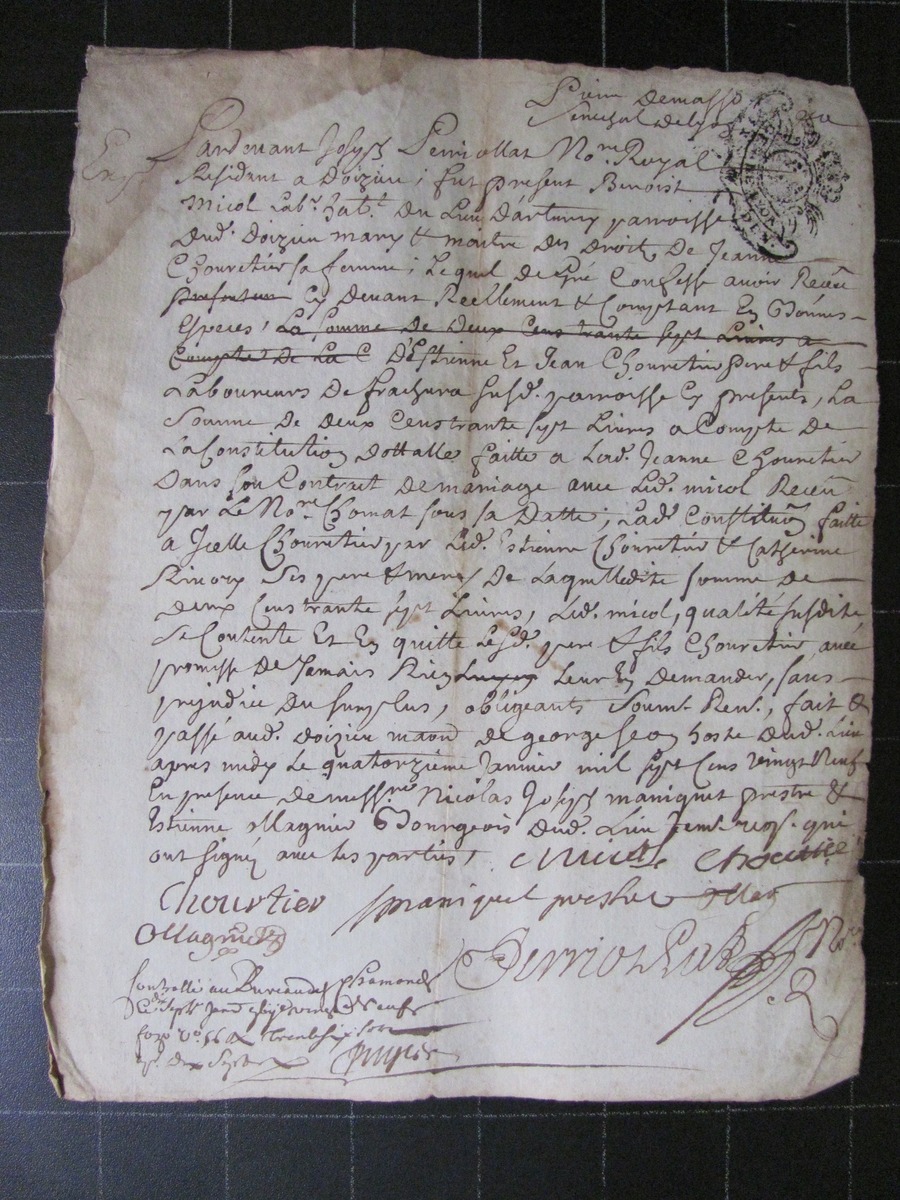 Pierre Demasso
Senechal de Lyon
Pardevant Joseph Perriollat No.re Royal
Résident a Doizieu ; fut present Benoist
Micol Lab.r hab.t Du Lieu Darturey parroisse
Dud. Doizieu mary & maitre des Droits De Jeanne
Chouretier sa femme ; Lequel de Gré Confesse auoir Receu
Cy Deuant Reellement & Comptant En Bonnes
Especes, La somme De Deux Cens trante sept Liures a
Compte De La C D'Estienne Et Jean Chouretier pere & fils
Laboureurs De frachura susd. parroisse Cy presents, La
Somme De Deux Cens trante sept Liures a Compte De
La Constitution dottalle faitte a Lad. Jeanne Chouretier
Dans son Contract de mariage auec Led. micol Receu
par Le No.re Chomat sous sa Datte ; Lad. Constitu.on faitte
a Jcelle Chouretier par Led. Estienne Chouretier & Catherine
ses pere & mere, De Laquelledite somme de
deux Cens trante sept Liures, Led. micol, qualité susdite,
Se Contente Et En quitte Lesd. pere & fils Chouretier, auec
promesse De Jamais Rien Leur En Demander, sans
prejudice Du surplus, obligeants Soumt. Ren., fait &
passé aud. Doizieu maon de george hoste Dud. Lieu
apres midy Le quatorzieme Januier mil sept Cens vingt Neuf
En presence de mess.re Nicolas Joseph maniquet prestre &
Estienne ollagnier Bourgeois Dud. Lieu qui
ont signéz auec les parties,
Chourtier
maniquet prestre
Ollagnier
Perriollat No.re
Controllé au Bureau de St Chamond